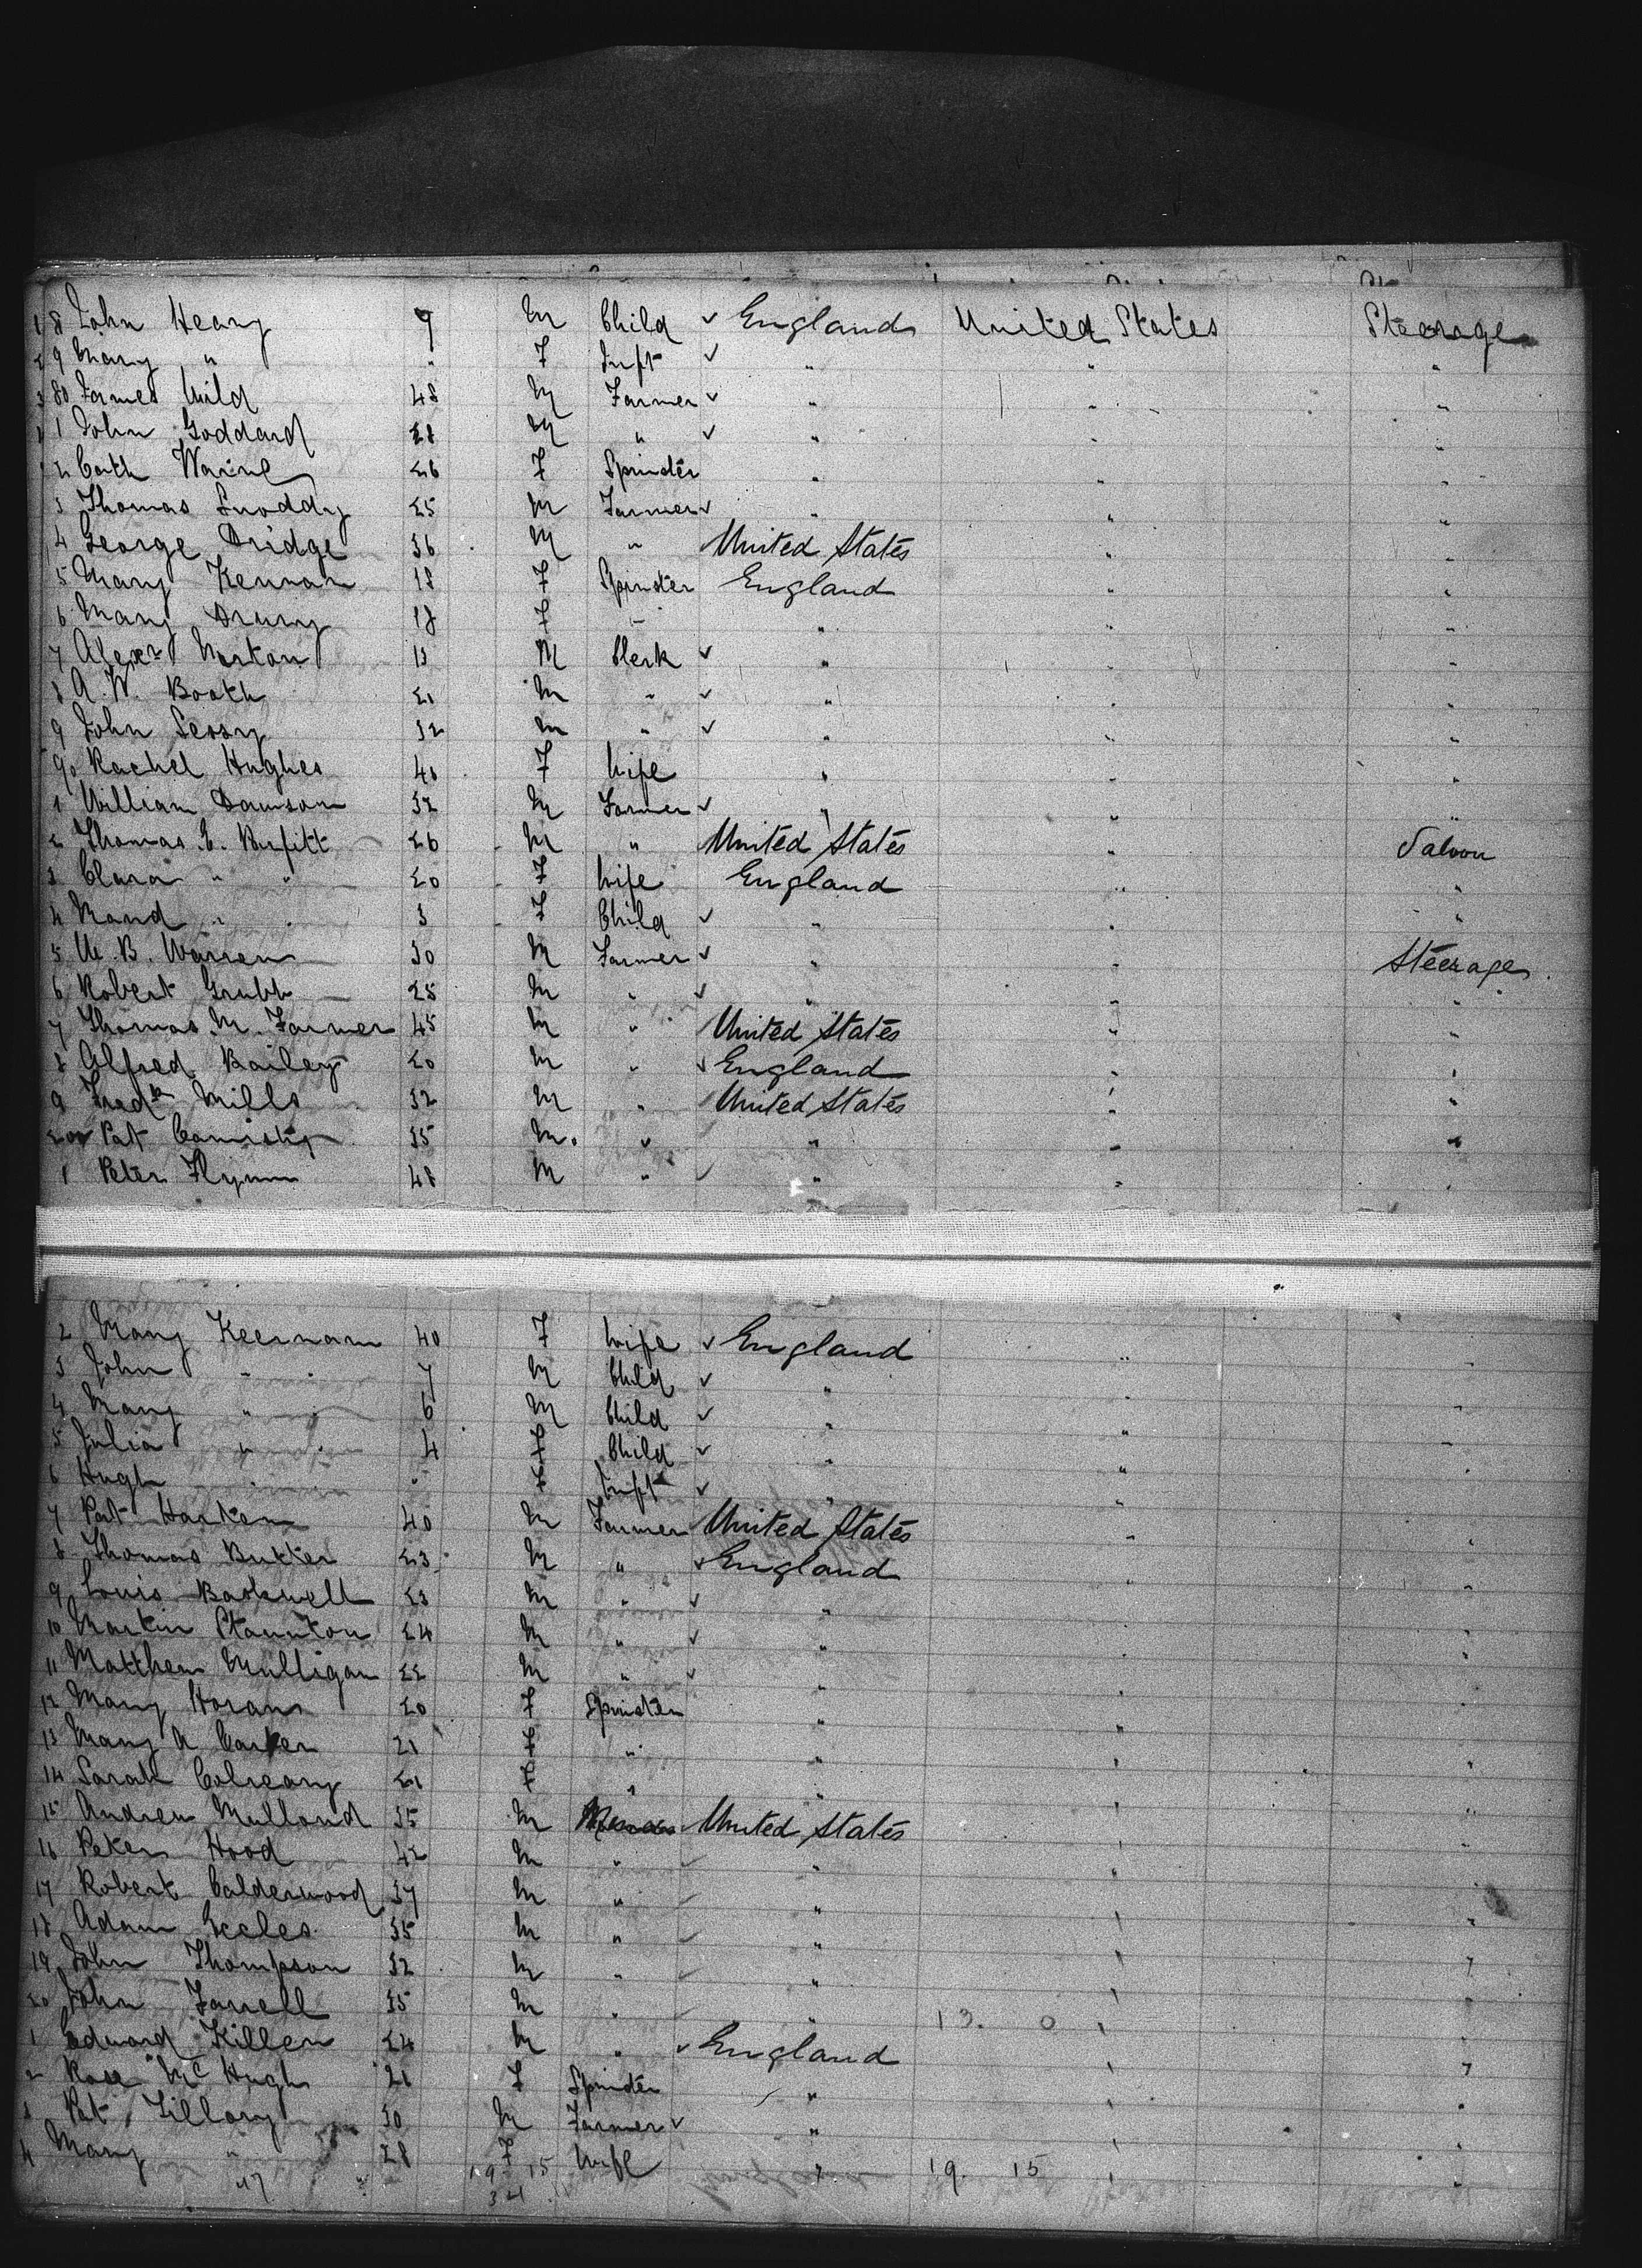 8 John Heany 9 M Child ✓ England United States Steerage
9 Mary " " F Inft ✓ " " "
80 James Wild 48 M Farmer ✓ " " "
1 John Goddard 28 M " ✓ " " "
2 Cath 26 F Spinster " " "
3 Thomas Snoddy 25 M Farmer ✓ " " "
4 George Bridge 36 M " United States " "
5 Mary Kernan 18 F Spinster England " "
6 Mary Drury 18 F " " " "
7 Alexr Norton 18 M Clerk ✓ " " "
8 A. W. Booth 21 M " ✓ " " "
9 John 32 M " ✓ " " "
90 Rachel Hughes 40 F Wife " " "
1 William Dawson 32 M Farmer ✓ " " "
2 Thomas G. Burfitt 26 M " United States " Saloon
3 Clara " " 20 F Wife England " "
4 Maud " " 3 F Child ✓ " " "
5 W. B. Warren 30 M Farmer ✓ " " Steerage
6 Robert Grubb 25 M " ✓ " " "
7 Thomas M. Farmer 45 M " United States " "
8 Alfred Bailey 20 M " ✓ England " "
9 Fredk Mills 32 M " United States " "
200 Pat 35 M " " " "
1 Peter Flynn 48 M " ✓ " " "
2 Mary Keernan 40 F Wife ✓ England " "
3 John " " 7 M Child ✓ " " "
4 Mary " " 6 M Child ✓ " " "
5 Julia " " 4 F Child ✓ " " "
6 Hugh " " " F Inft ✓ " " "
7 Pat Harken 40 M Farmer United States " "
8 Thomas Butler 23 M " ✓ England " "
9 Louis 23 M " ✓ " " "
10 Martin Staunton 24 M " ✓ " " "
11 Matthew Mulligan 22 M " ✓ " " "
12 Mary Horan 20 F Spinster " " "
13 Mary A Carker 21 F " " " "
14 Sarah Colreavy 21 F " " " "
15 Andrew Mulland 35 M United States " "
16 Peter Hood 42 M " " " "
17 Robert Calderwood 37 M " " " "
18 Adam Eccles 35 M " " " "
19 John Thompson 32 M " " " "
20 John Farrell 35 M " " 13. 0 " "
1 Edward Killen 24 M " ✓ England " "
2 Rose McHugh 21 F Spinster " " "
3 Pat Tillory 30 M Farmer ✓ " " "
4 Mary " 28 F Wife " 19. 15 " "
47 19 15
34